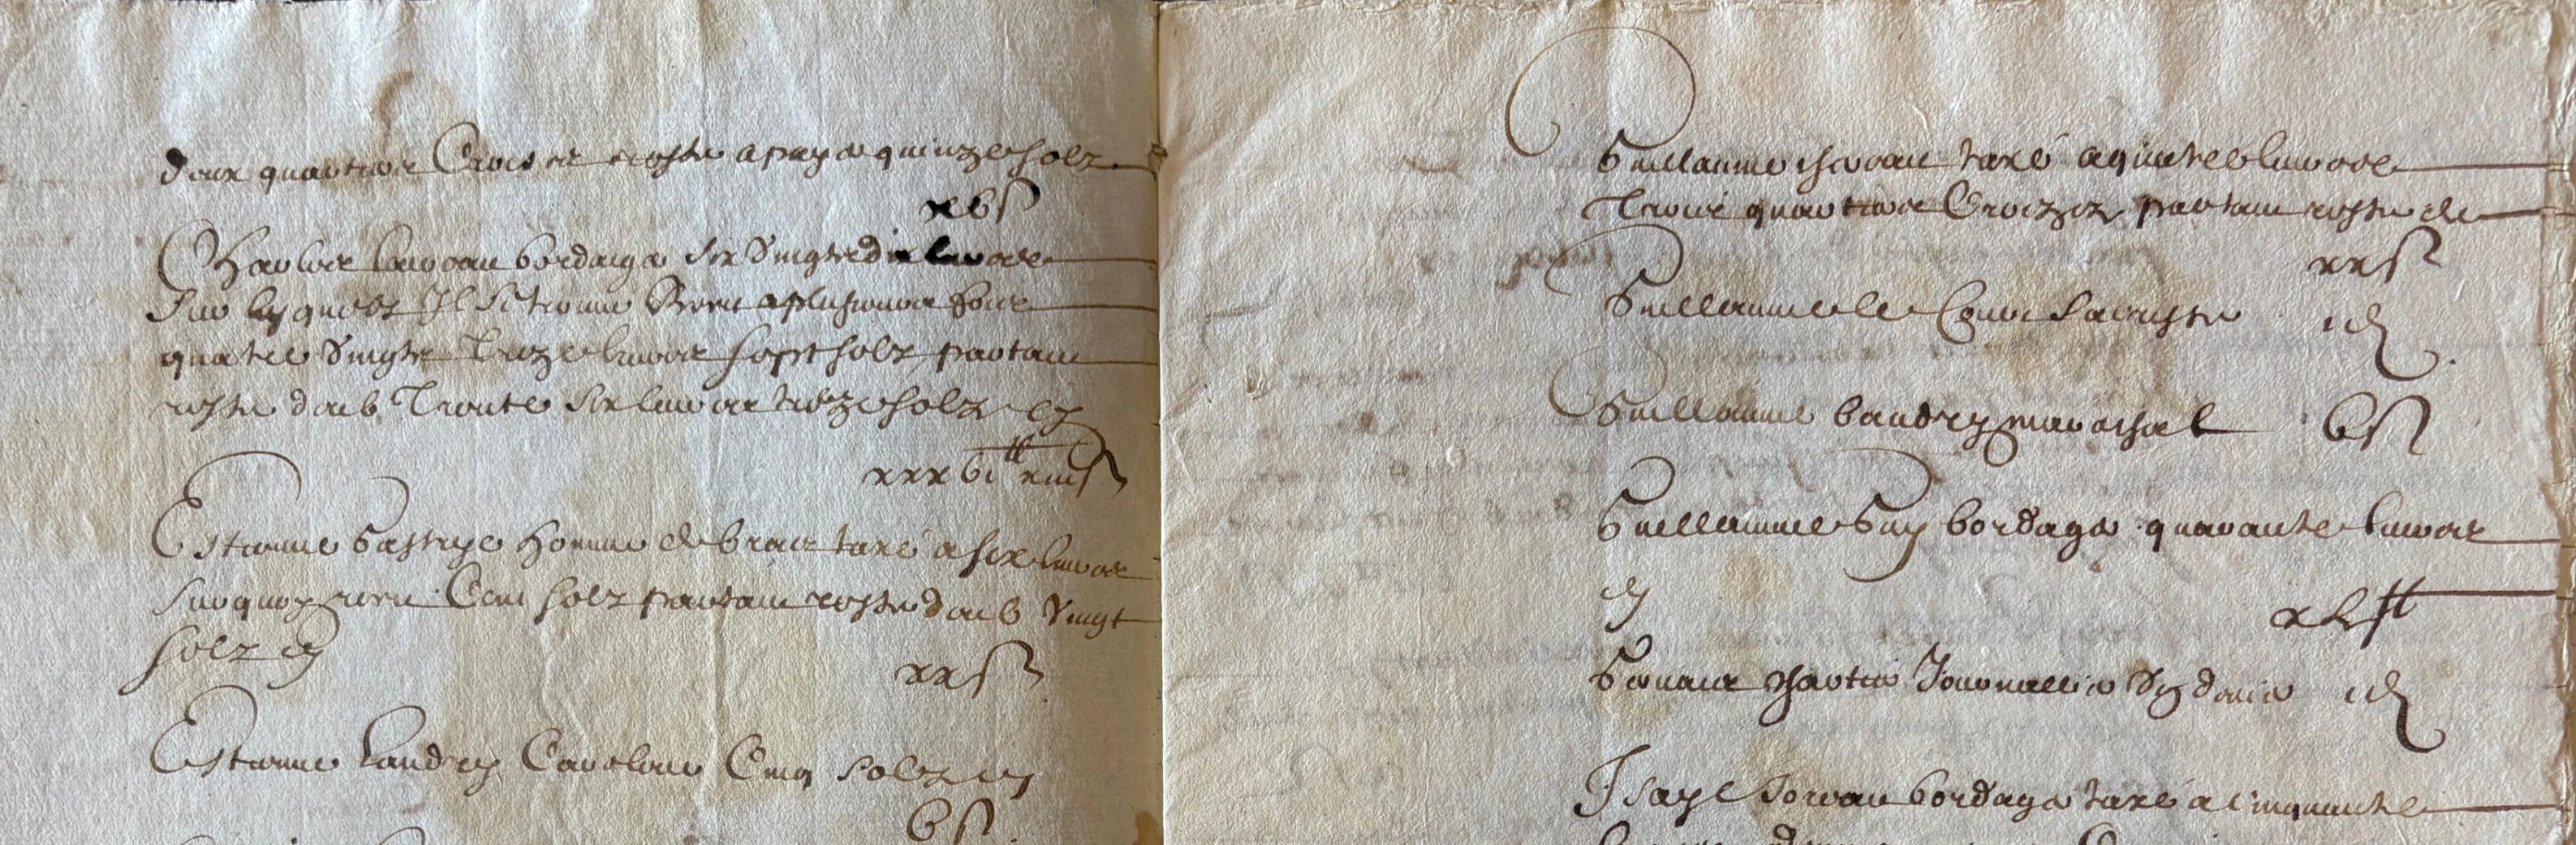 deux quartiers Croisez reste a payer quinze solz
xv s
Charles bordager six vingtz dix livres
sur lesquelz Il se trouve Receu a plusieurs fois
quatre vingtz treize livres sept solz partant
reste doib Trente six livres treize solz cy
xxxvi tt xiii s
Estienne homme de bras taxé a six livres
surquoy receu Cent solz partant reste doib vingt
solz cy
xx s
Estienne Landry Cinq solz cy
v s
Guillaume taxé a quatre livres
Trois quartiers Croizez partant reste de
xx s
Guillaume le Sacriste i d
Guillaume baudry mareschal v s
Guillaume Guy bordager quarante livres
cy
xl tt
Journallier i d
Isaye bordager taxé a cinquante